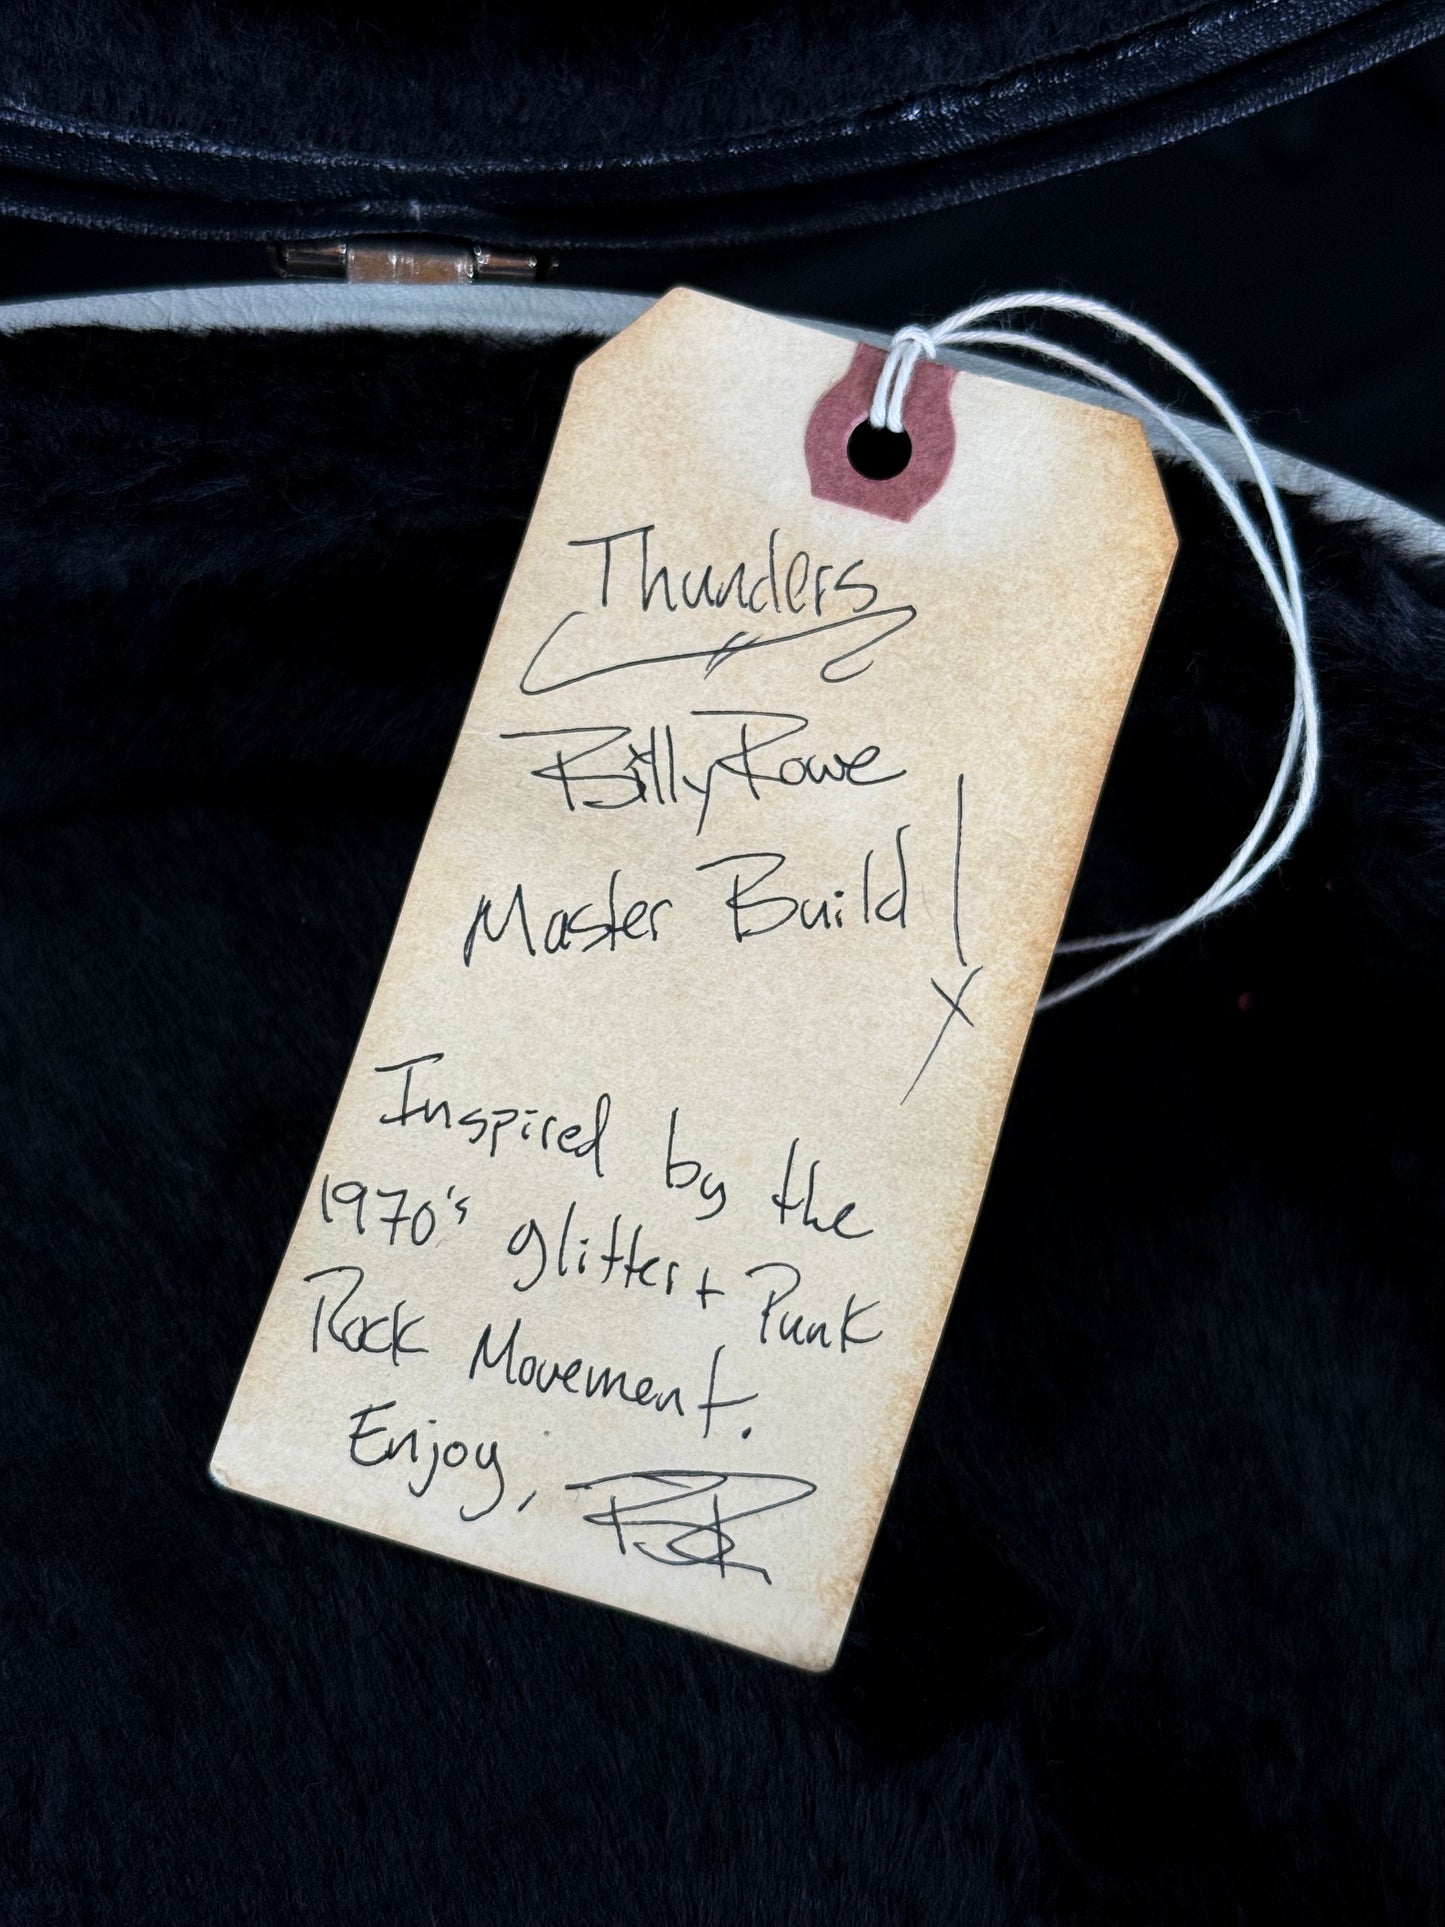 Thunders
Billy Rowe
Master Build!
x
Inspired by the
1970's glitter + Punk
Rock Movement.
Enjoy, BR